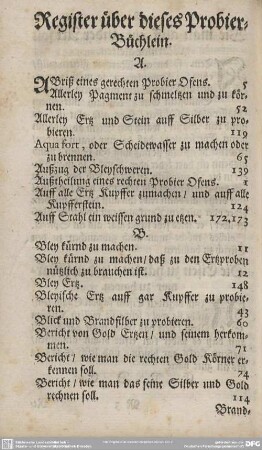 Register über dieses Probier-
Büchlein.
A.
ABriß eines gerechten Probier Ofens. 5
Allerley Pagment zu schmeltzen und zu kör-
nen. 52
Allerley Ertz und Stein auff Silber zu pro-
bieren. 119
Aqua fort, oder Scheidewasser zu machen oder
zu brennen. 65
Außzug der Bleyschweren. 139
Außtheilung eines rechten Probier Ofens. 1
Auff alle Ertz Kupffer zumachen/ und auff alle
Kupfferstein. 124
Auff Stahl ein weissen grund zu etzen. 172,173
B.
Bley kürnd zu machen. 11
Bley kürnd zu machen/ daß zu den Ertzproben
nützlich zu brauchen ist. 12
Bley Ertz. 148
Bleyische Ertz auff gar Kupffer zu probie-
ren. 43
Blick und Brandsilber zu probieren. 60
Bericht von Gold Ertzen/ und seinem herkom-
men. 71
Bericht/ wie man die rechten Gold Körner er-
kennen soll. 74
Bericht/ wie man das feine Silber und Gold
rechnen soll. 114
Brand-
DFG